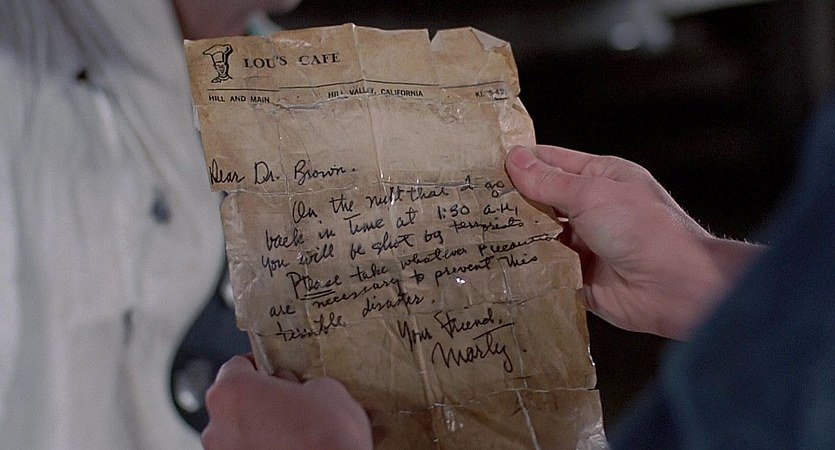 LOU'S CAFE
HILL AND MAIN HILL VALLEY, CALIFORNIA
Dear Dr. Brown.
On the night that I go
back in time at 1:30 a.m,
you will be shot by terrorists.
Please take whatever precautions
are necessary to prevent this
terrible disaster.
Your Friend,
Marty.